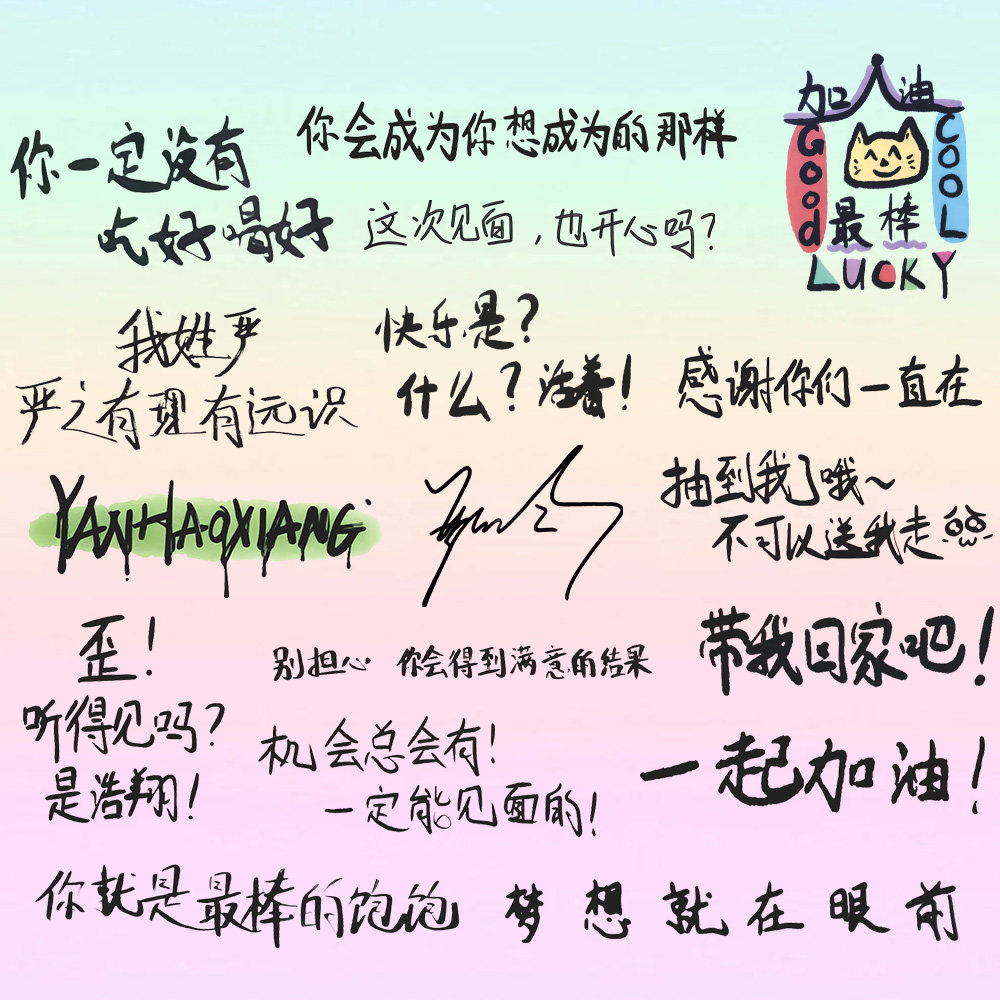 你一定没有
吃好喝好
你会成为你想成为的那样
这次见面，也开心吗？
加油
Good
COOL
最棒
LUCKY
我姓严
严之有理有远识
快乐是？
什么？活着！
感谢你们一直在
YANHAOXIANG
抽到我了哦～
不可以送我走
歪！
听得见吗？
是浩翔！
别担心 你会得到满意的结果
带我回家吧！
机会总会有！
一定能见面的！
一起加油！
你就是最棒的饱饱
梦想就在眼前